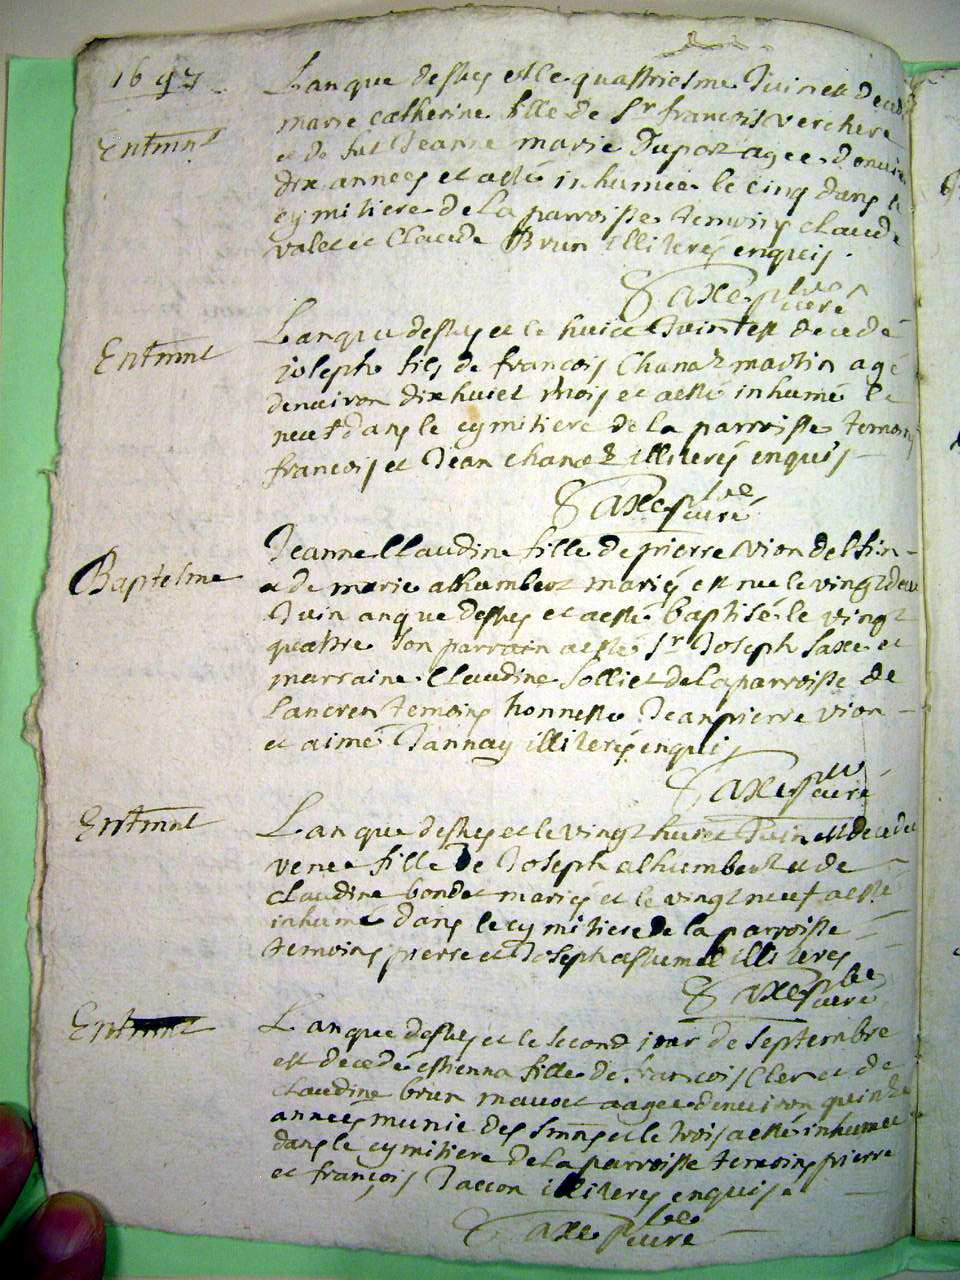 1697
Lan que dessus et le quattriesme Juin est decedé
Entmnt
marie catherine fille de Sr francois verchere
et de fut Jeanne marie Duport agee denviron
dix annees et a esté inhumée le cinq dans le
cymitiere de la parroisse temoins claude
valet et Claude Brun illiteres enquis .
Saxe plve curé
Entmnt
Lan que dessus et le huict Juin est decedé
joseph fils de francois Chanat martin agé
denuiron dix huict mois et a esté inhumé le
neuf dans le cymitiere de la parroisse temoins
francois et Jean chanat illiterés enquis
Saxe curé
Baptesme
Jeanne Claudine fille de pierre Vion delphin
et de marie alhumbert mariés est nee le vingt deux
Juin an que dessus et a esté baptisé le vingt
quattre son parrain a esté Sr Joseph Saxe et
marraine Claudine Solliet de la parroisse de
Lancren temoins honneste Jean pierre vion
et aimé Jannay illiterés enquis
Saxe curé
Entmnt
Lan que dessus et le vingt huict Juin est decedee
fille de Joseph alhumbert et de
claudine bondet mariés et le vingt neuf a esté
inhumé dans le cymitiere de la parroisse
temoins pierre et Joseph illiteres
Saxe curé
Entmnt
Lan que dessus et le second jour de septembre
est decedé estienna fille de francois Cler et de
claudine brun agee denuiron quinze
annees munie des Smns et le trois a esté inhumee
dans le cymitiere de la parroisse temoins pierre
et francois Jaccon illiteres enquis .
Saxe curé